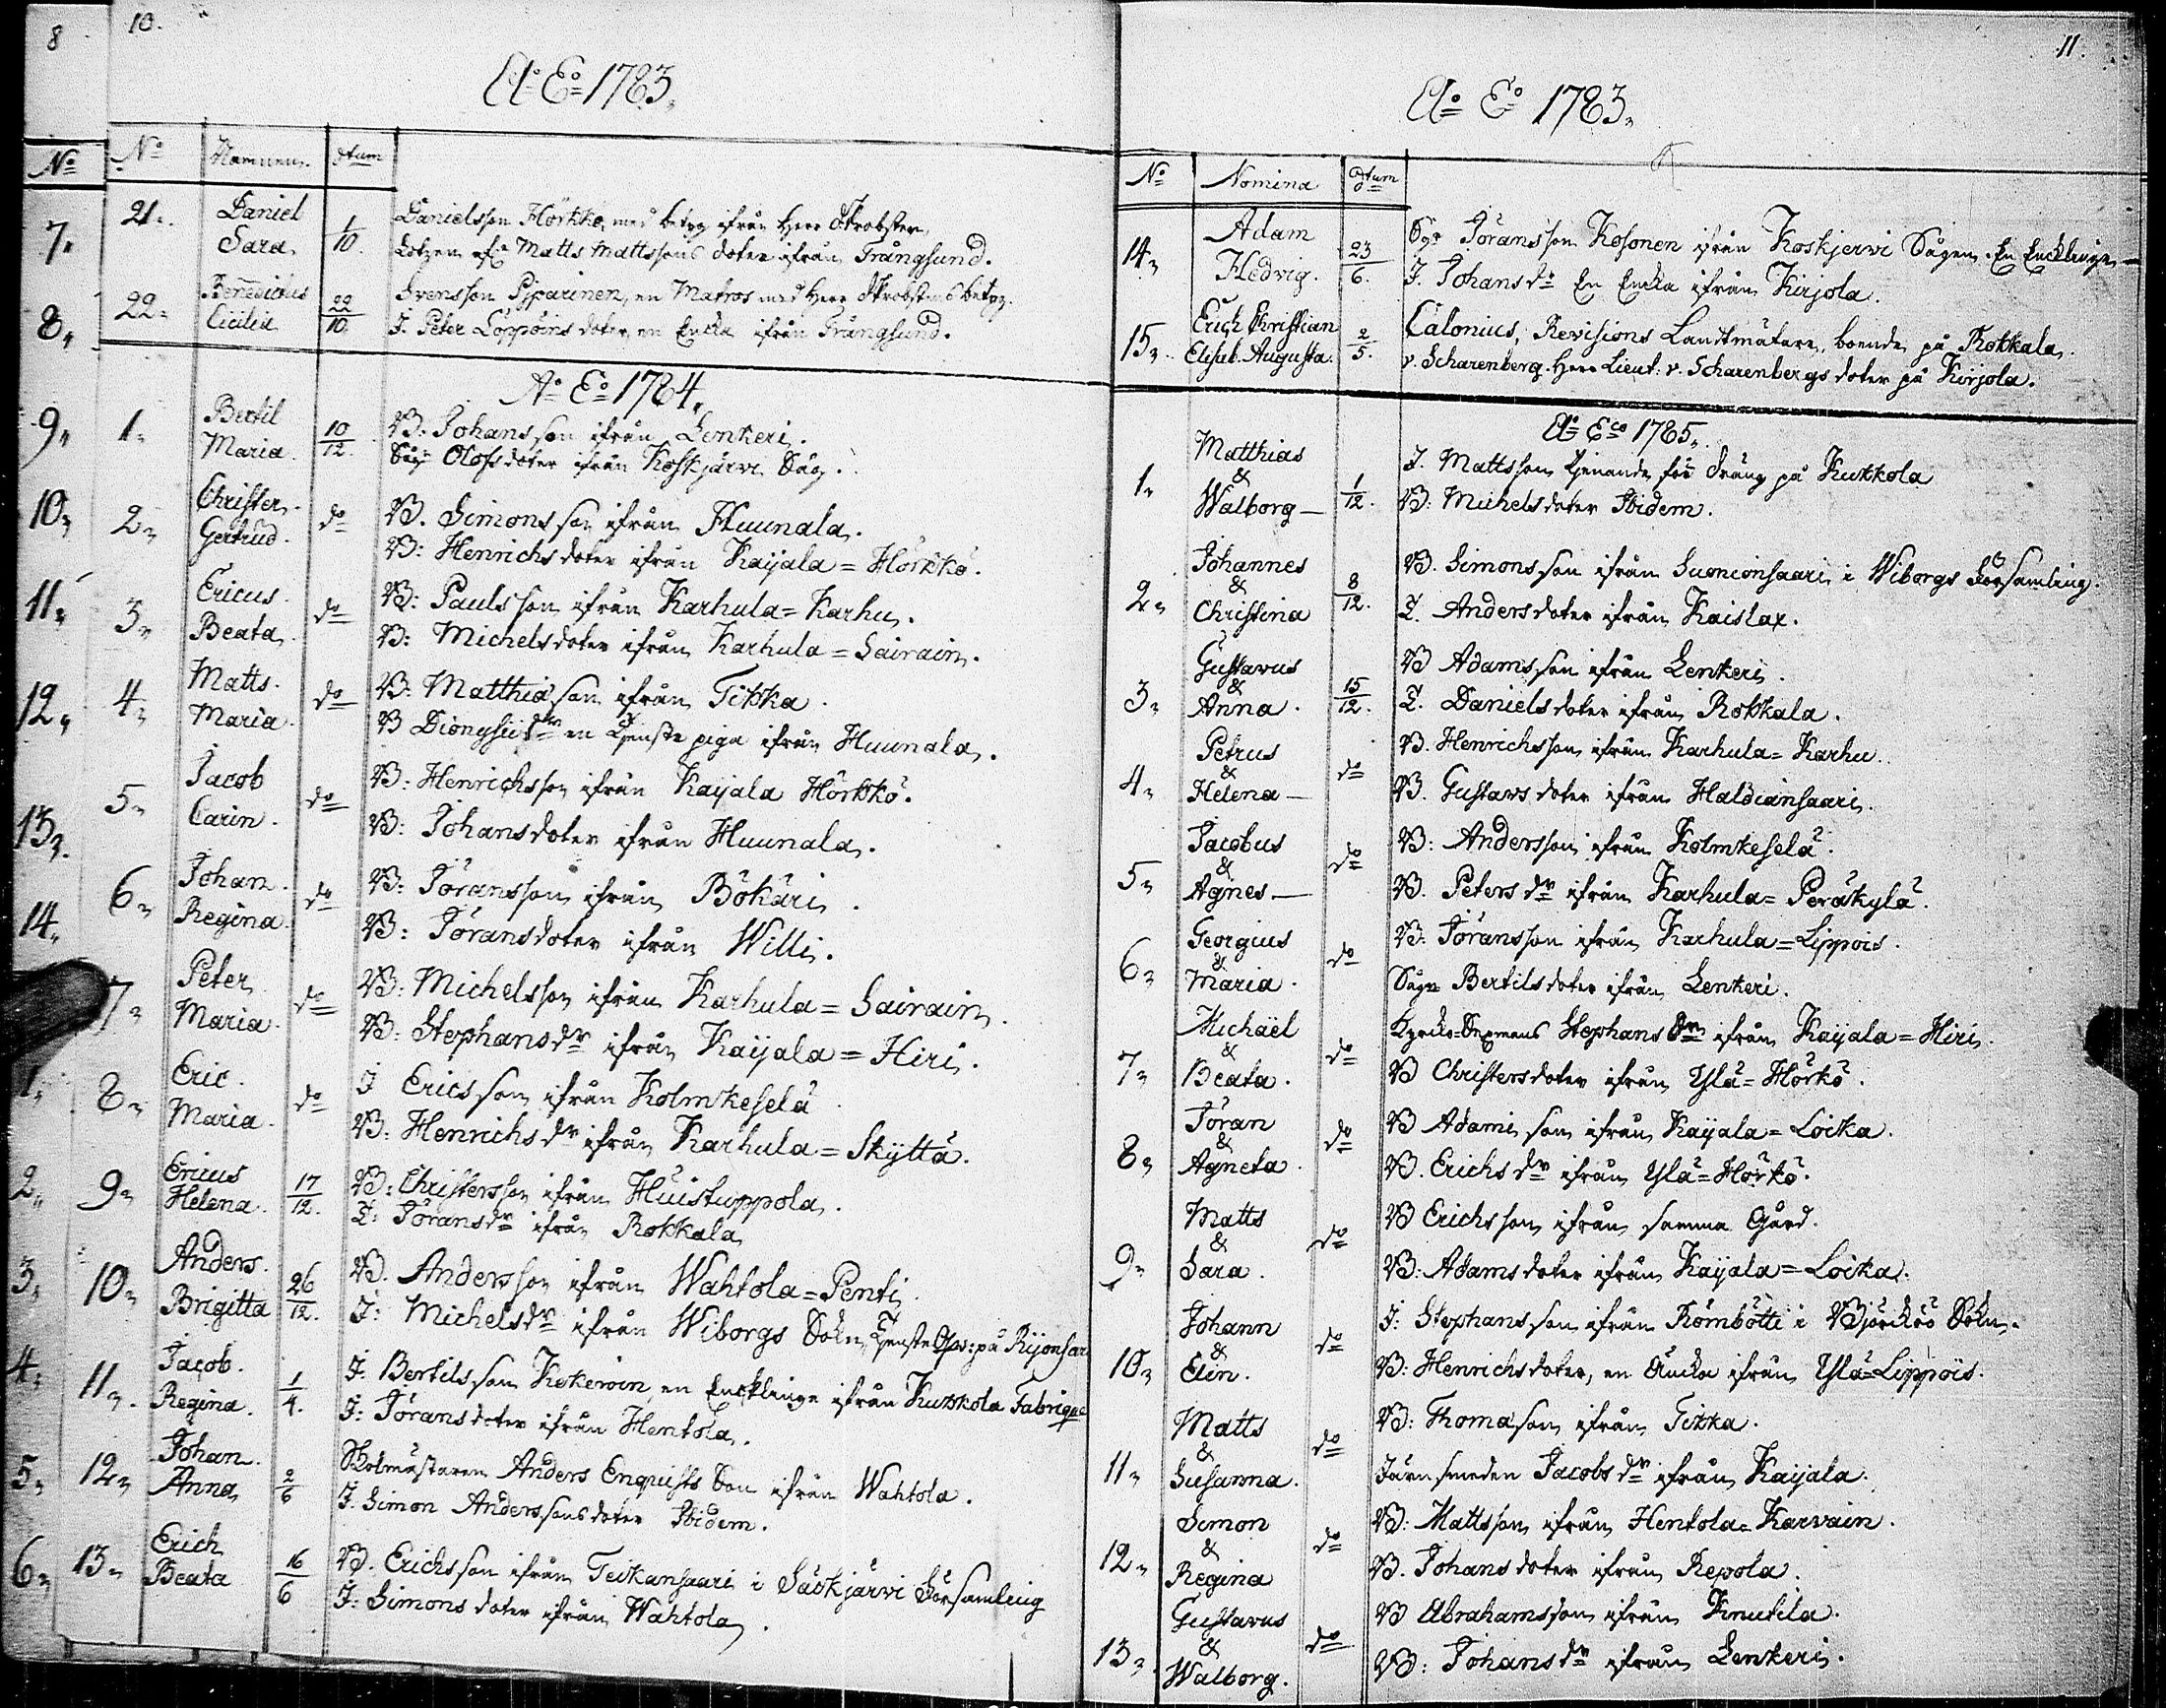 8 10.
A:o E:o 1783.
No No Namnen. Datum
7. 21. Daniel 1/10 Danielsson Hörkkö, med betyg ifrån Herr Probsten
Sara Matts Mattssons doter ifrån Trångsund.
8. 22. Benedictus 22/10 Svensson Pijparinen, en Matros med Herr Probstens betyg.
Cicilia I. Peter Löppöins doter, en Encka ifrån Trångsund.
A:o E:o 1784.
9. 1. Bertil 10/12. B. Johansson ifrån Lenkeri.
Maria. Olofsdoter ifrån Koskjärvi Såg.
10. 2. Christer do B. Simonsson ifrån Huunala.
Gertrud. B: Henrichsdoter ifrån Kaijala=Hörkkö.
11. 3. Ericus do B: Paulsson ifrån Karhula=Karhu.
Beata. B: Michelsdoter ifrån Karhula=Sairain.
12. 4. Matts. do B: Matthiäson ifrån Tikka.
Maria. B Dionysiidr en tjenste piga ifrån Huunala.
13. 5. Jacob do B. Henrichsson ifrån Kaijala Hörkkö.
Carin. B: Johansdoter ifrån Huunala.
14. 6. Johan. do B: Jöransson ifrån Bökäri.
Regina. B: Jöransdoter ifrån Willi.
7. Peter do B: Michelsson ifrån Karhula=Sairain.
Maria. B: Stephansdr ifrån Kaijala=Hiri.
1. 8. Eric. do I Ericsson ifrån Kolmkeselä
Maria. B: Henrichsdr ifrån Karhula=Skyttä.
2. 9. Ericus 17/12. B: Christersson ifrån Huistuppola.
Helena. I: Jöransdr ifrån Rokkala
3. 10. Anders. 26/12. B. Andersson ifrån Wahtola=Penti.
Brigitta I: Michelsdr ifrån Wiborgs Sokn, tjenste på Rijonsari
4. 11. Jacob. 1/4. I. Bertilsson Kekeroin, en Encklinge ifrån Kukkola Fabrique
Regina. I: Jöransdoter ifrån Hentola.
5. 12. Johan. 2/6 Skolmästaren Anders Enquists Son ifrån Wahtola.
Anna I. Simon Anderssons doter Ibidem.
6. 13. Erich 16/6 B. Erichsson ifrån Teikansaari i Säckjärvi Församling
Beata I: Simonsdoter ifrån Wahtola.
11.
A:o E:o 1783.
No Nomina Datum
14. Adam 23/6. Jöransson Kosonen ifrån Koskjervi Sågen. En Encklinge
Hedvig. I. Johansdr En Encka ifrån Kirjola.
15. Erich Christian 2/5. Calonius, Revisions Landtmätare, boende på Rokkala.
Elisab. Augusta. v. Scharenberg. Herr Lieut: v. Scharenbergs doter på Kirjola.
A:o E:o 1785.
Matthias I. Mattsson tjenande för dräng på Kukkola
1. & 1/12.
Walborg B: Michelsdoter Ibidem.
Johannes B. Simonsson ifrån Suonionsaari i Wiborgs Församling.
2. & 8/12.
Christina I. Andersdoter ifrån Kaislax.
Gustavus B Adamsson ifrån Lenkeri.
3. & 15/12.
Anna. I. Danielsdoter ifrån Rokkala.
Petrus B. Henrichsson ifrån Karhula=Karhu.
4. & do
Helena B. Gustavsdoter ifrån Haldiansaari.
Jacobus B: Andersson ifrån Kolmkeselä.
5. & do
Agnes B. Petersdr ifrån Karhula=Peräkylä.
Georgius B: Jöransson ifrån Karhula=Lippois.
6. & do
Maria. Bertilsdoter ifrån Lenkeri.
Michäel Kyrcko-Sexmans Stephans ifrån Kaijala=Hiri.
7. & do
Beata. B Christersdoter ifrån Ylä=Hörkö.
Jöran B Adamisson ifrån Kaijala=Loika.
8. & do
Agneta. B. Erichsdr ifrån Ylä=Hörkö.
Matts B Erichsson ifrån samma Gård.
9. & do
Sara. B: Adamsdoter ifrån Kaijala=Loika.
Johann I: Stephansson ifrån Römbötti i Björckö Sokn.
10. & do
Elin. B: Henrichsdoter, en Encka ifrån Ylä=Lippois.
Matts B: Thomason ifrån Tikka.
11. & do
Susanna. Järnsmeden Jacobs dr ifrån Kaijala.
Simon B: Mattsson ifrån Hentola=Karvain.
12. & do
Regina B. Johansdoter ifrån Repola.
Gustavus B Abrahamsson ifrån Knutila.
13. & do
Walborg. B: Johansdr ifrån Lenkeri.